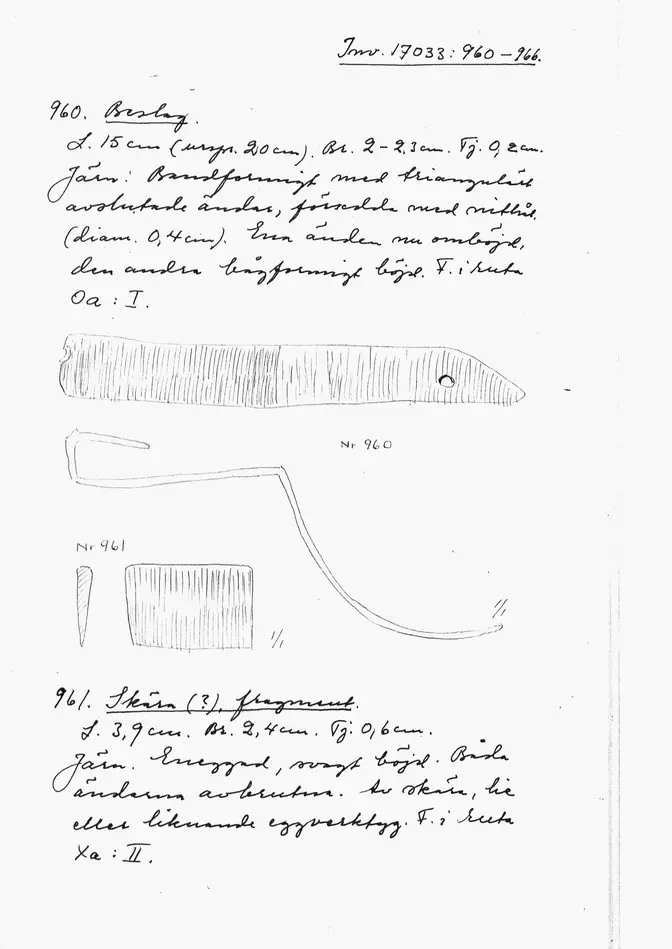 Inv. 17033: 960 – 966.
960. Beslag.
L. 15 cm (urspr. 20 cm). Br. 2 – 2,3 cm. Tj. 0,2 cm.
Järn: Bandformigt med triangulärt
avslutade ändar, försedda med nithål.
(diam. 0,4 cm). Ena änden nu omböjd,
den andra bågformigt böjd. F. i ruta
Oa : I.
Nr 960
Nr 961
1/1
1/1
961. Skära (?), fragment.
L. 3,9 cm. Br. 2,4 cm. Tj. 0,6 cm.
Järn. Eneggad, svagt böjd. Båda
ändarna avbrutna. Av skära, lie
eller liknande eggverktyg. F. i ruta
Xa : II.